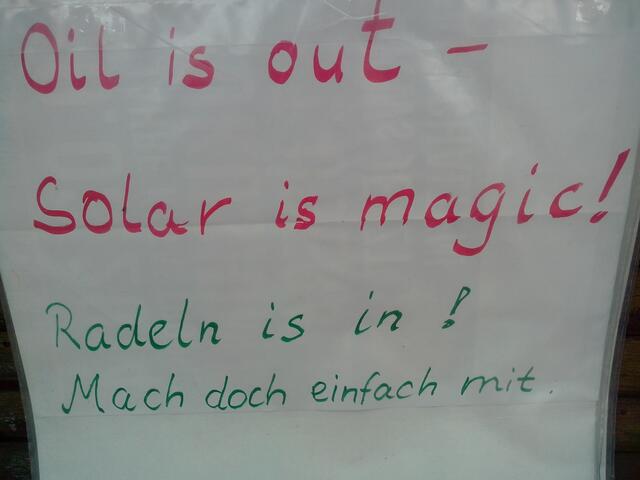 Oil is out -
Solar is magic!
Radeln is in !
Mach doch einfach mit.